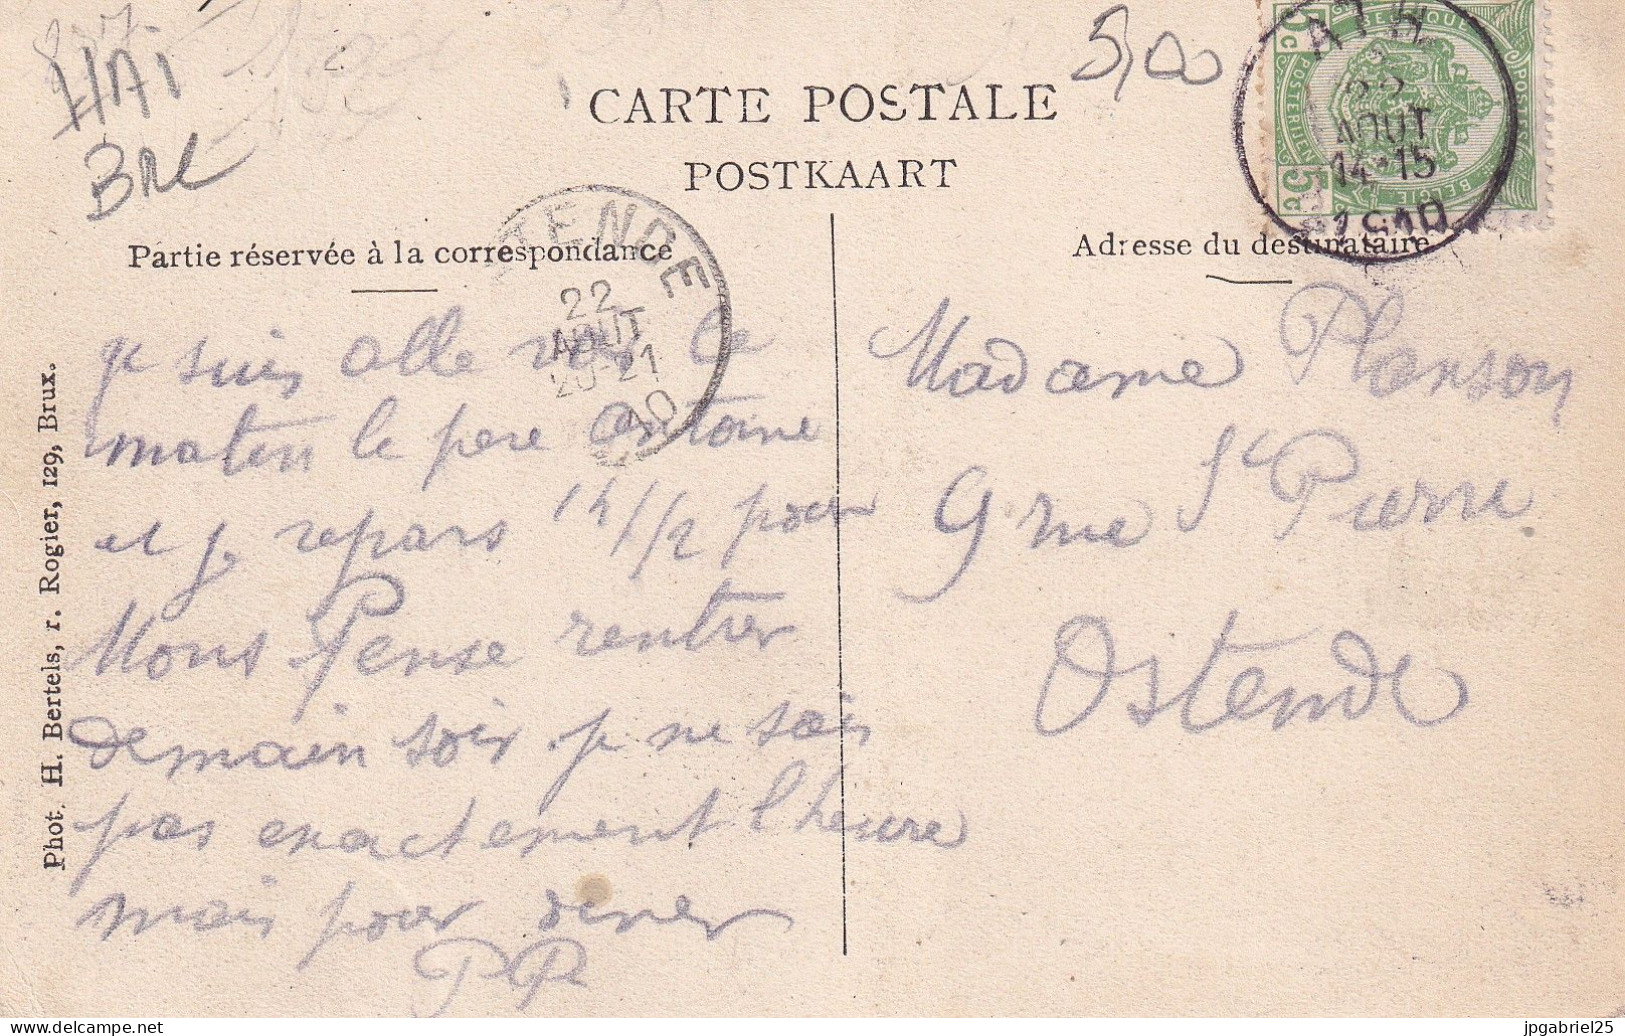 HAI
BRL
5,00
CARTE POSTALE
POSTKAART
Partie réservée à la correspondance
Adresse du destinataire
BELGIQUE
POSTERIJEN
POSTES
BELGIË
5c
5c
ATH
22
AOUT
14-15
1910
TENDE
22
AOUT
20-21
10
je suis allé voir ce
matin le pere antoine
et je repars 1h 1/2 pour
Mons Pense rentrer
demain soir je ne sais
pas exactement l'heure
mais pour diner
PR
Madame Planson
9 rue St Pierre
Ostende
Phot. H. Bertels, r. Rogier, 129, Brux.
jpgabriel25